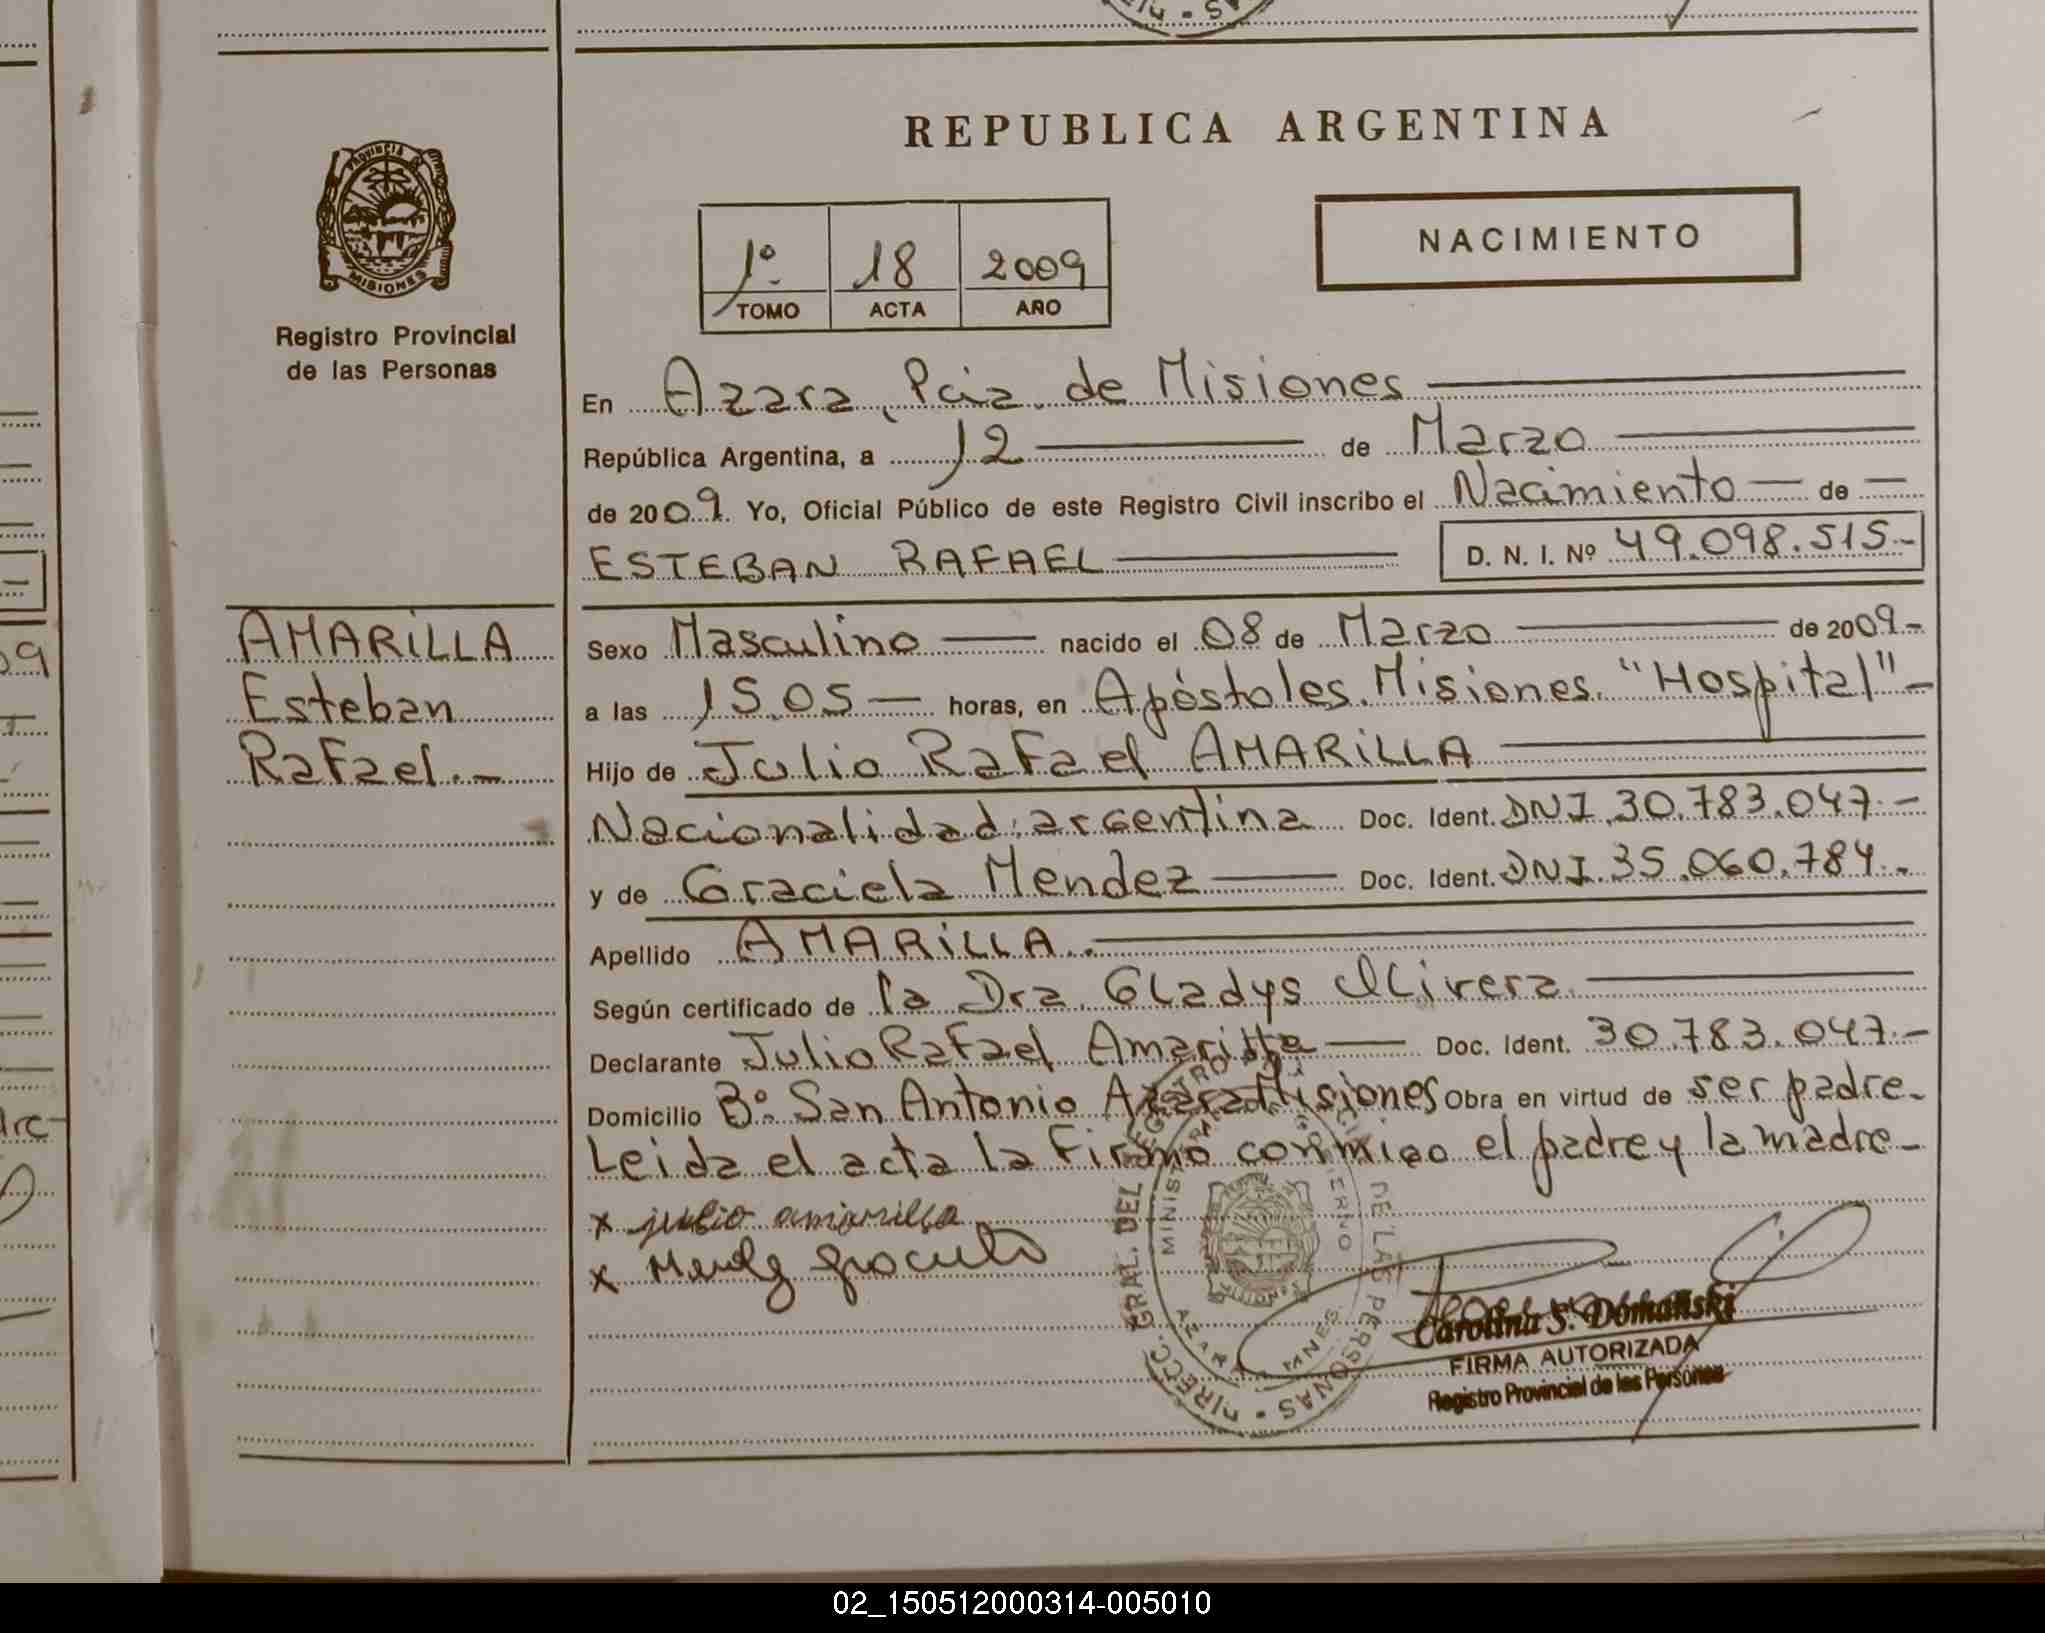 REPUBLICA ARGENTINA
PROVINCIA
MISIONES
Registro Provincial
de las Personas
NACIMIENTO
1º 18 2009
TOMO ACTA AÑO
En Azara, Pcia. de Misiones
República Argentina, a 12 de Marzo
de 2009. Yo, Oficial Público de este Registro Civil inscribo el Nacimiento de
ESTEBAN RAFAEL D. N. I. Nº 49.098.515.-
AMARILLA
Esteban
Rafael.-
Sexo Masculino nacido el 08 de Marzo de 2009.-
a las 15.05 horas, en Apóstoles. Misiones. "Hospital"-
Hijo de Julio Rafael AMARILLA
Nacionalidad argentina Doc. Ident. DNI. 30.783.047.-
y de Graciela Mendez Doc. Ident. DNI. 35.060.784.-
Apellido AMARILLA.
Según certificado de la Dra. Gladys Olivera
Declarante Julio Rafael Amarilla Doc. Ident. 30.783.047.-
Domicilio Bº San Antonio Azara Misiones Obra en virtud de ser padre.
Leida el acta la Firma conmigo el padre y la madre-
x julio amarilla
x
DIRECC. GRAL. DEL REGISTRO DE LAS PERSONAS
AZARA MNES.
Carolina S. Domanski
FIRMA AUTORIZADA
Registro Provincial de las Personas
02_150512000314-005010